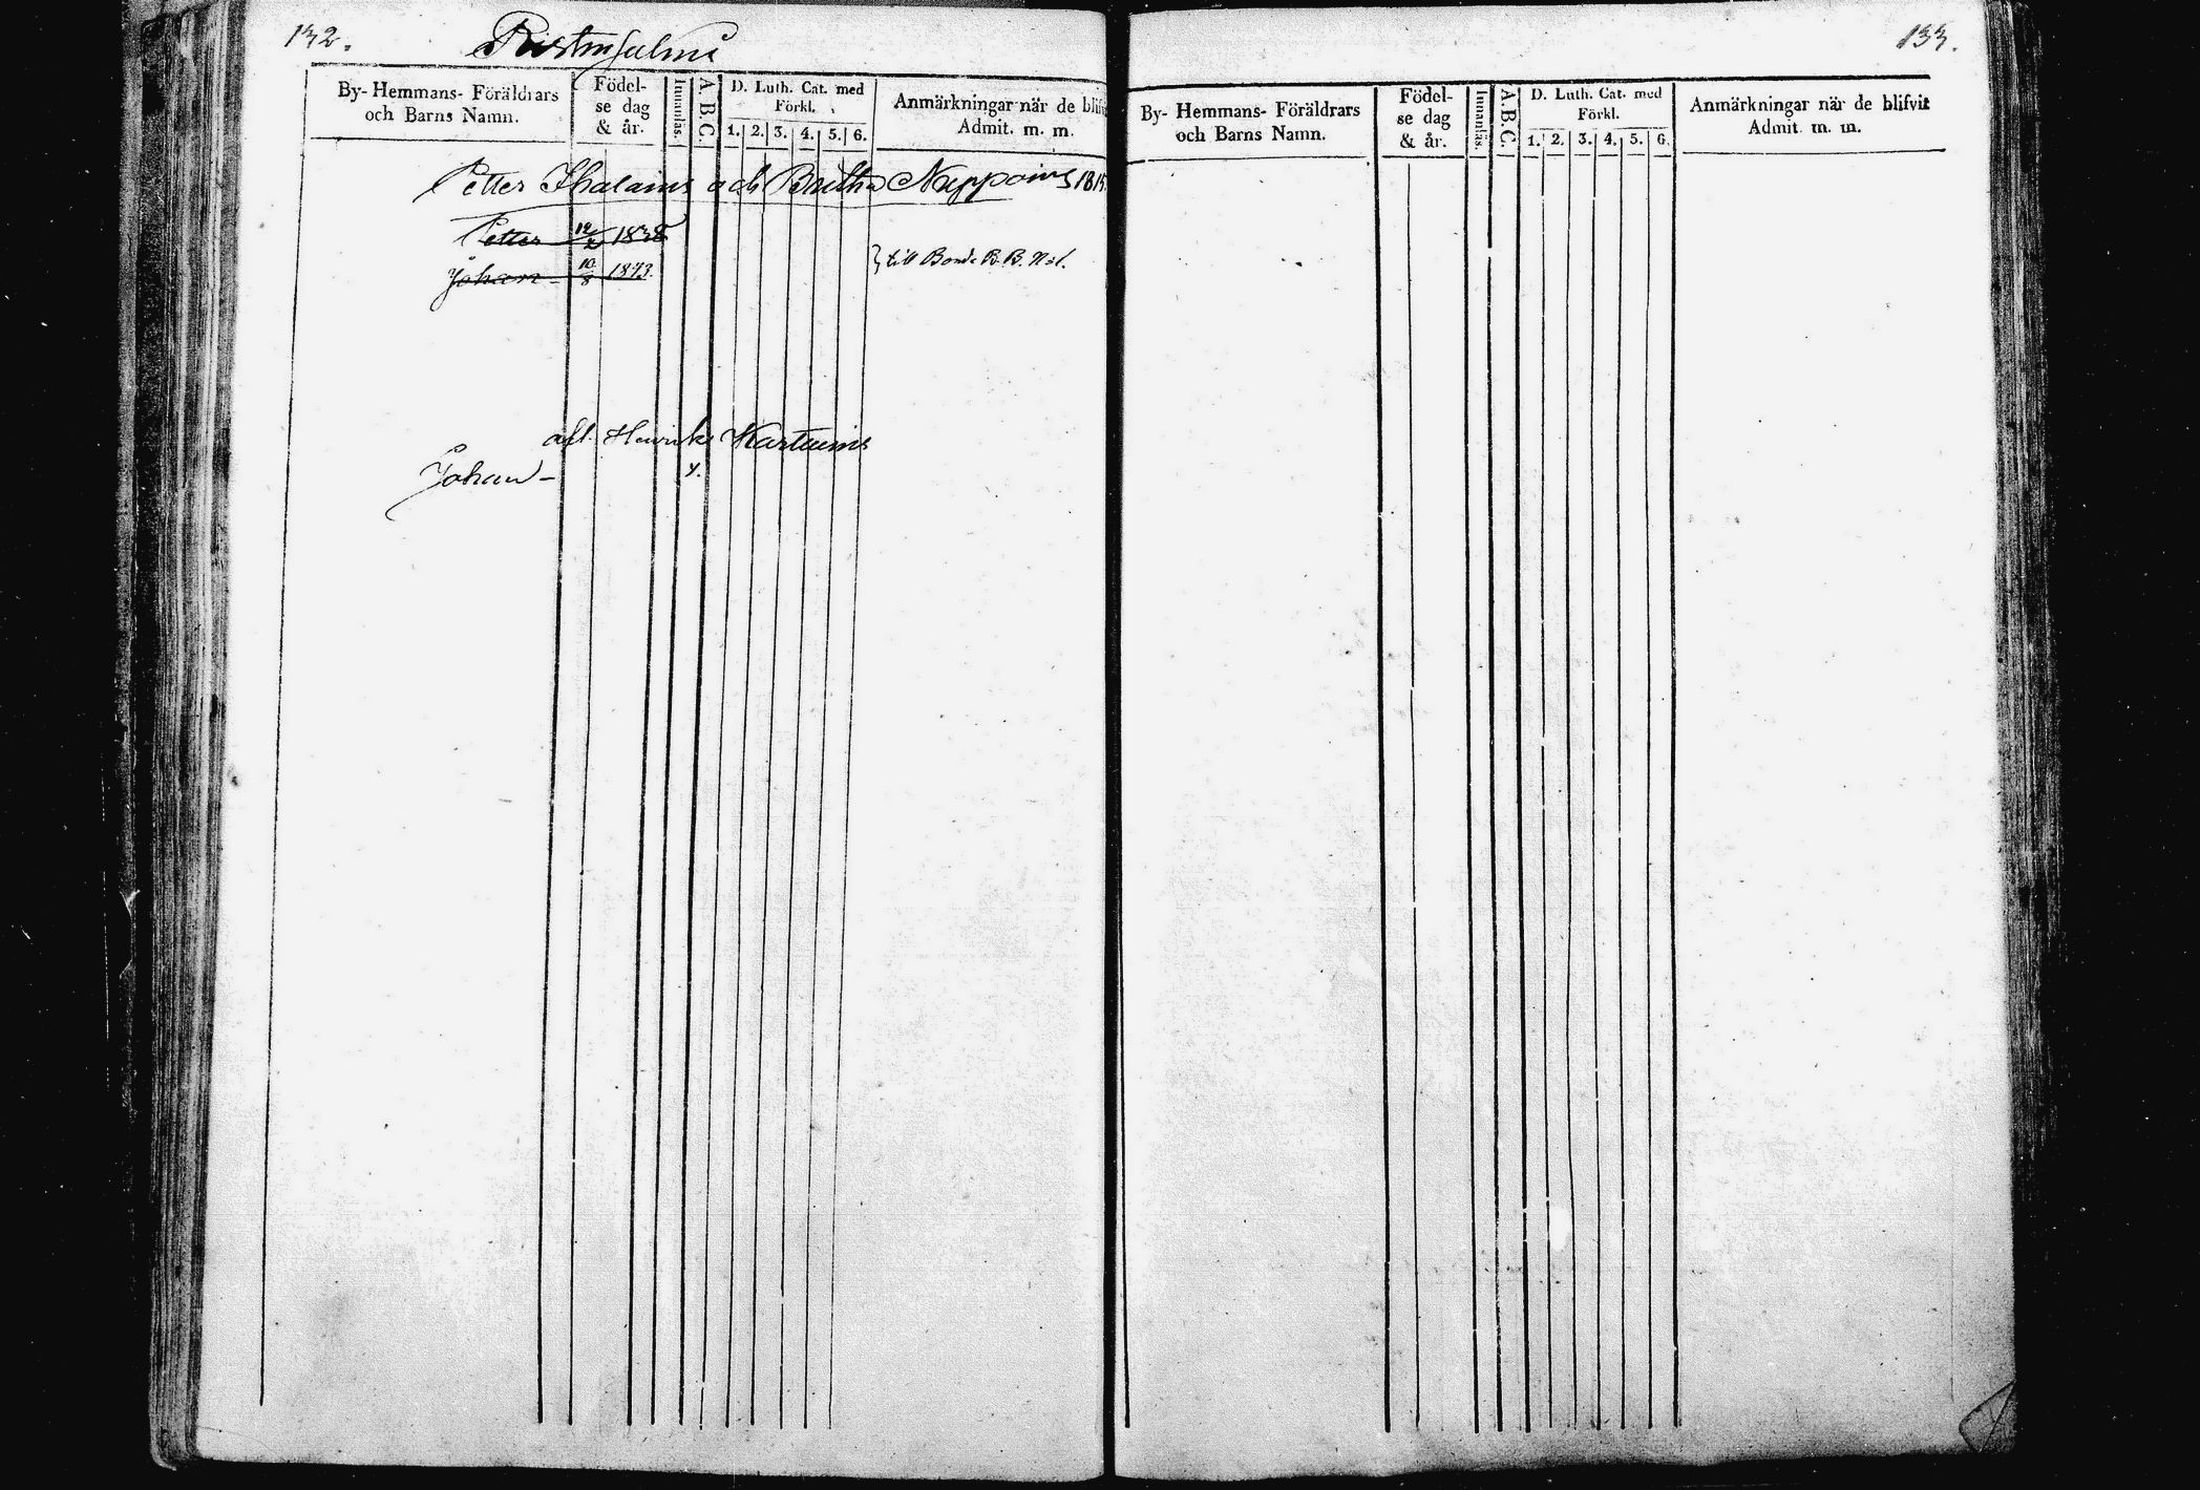 132.
Ristinsalmi
By- Hemmans- Föräldrars och Barns Namn.
Födel-se dag & år.
Innanläs.
A.B.C.
D. Luth. Cat. med Förkl.
1. 2. 3. 4. 5. 6.
Anmärkningar när de blifvi
Admit. m. m.
Petter Ihalains och Britha Nuppoins 181
Petter 12/2 1838
Johan 10/8 1843.
} till Bonde B. B. N:o 1.
afl. Henrik Karttuins
Johan - x.
133.
By- Hemmans- Föräldrars och Barns Namn.
Födel-se dag & år.
Innanläs.
A.B.C.
D. Luth. Cat. med Förkl.
1. 2. 3. 4. 5. 6.
Anmärkningar när de blifvit
Admit. m. m.